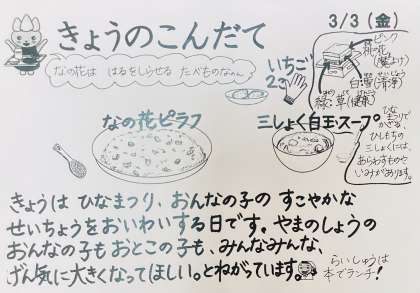 きょうのこんだて
3/3(金)
なの花は はるをしらせる たべものなのん
いちご
2こ
ピンク
桃の花
(魔よけ)
白:雪(清浄)
緑:草(健康)
なの花ピラフ
三しょく白玉スープ
ひなまつりで
かざる
ひしもちの
三しょくには、
あらわすものや
いみがあります。
きょうは ひなまつり、おんなの子の すこやかな
せいちょうをおいわいする日です。やまのしょうの
おんなの子も おとこの子も、みんなみんな、
げん気に大きくなってほしい。とねがっています。
らいしゅうは
本でランチ!